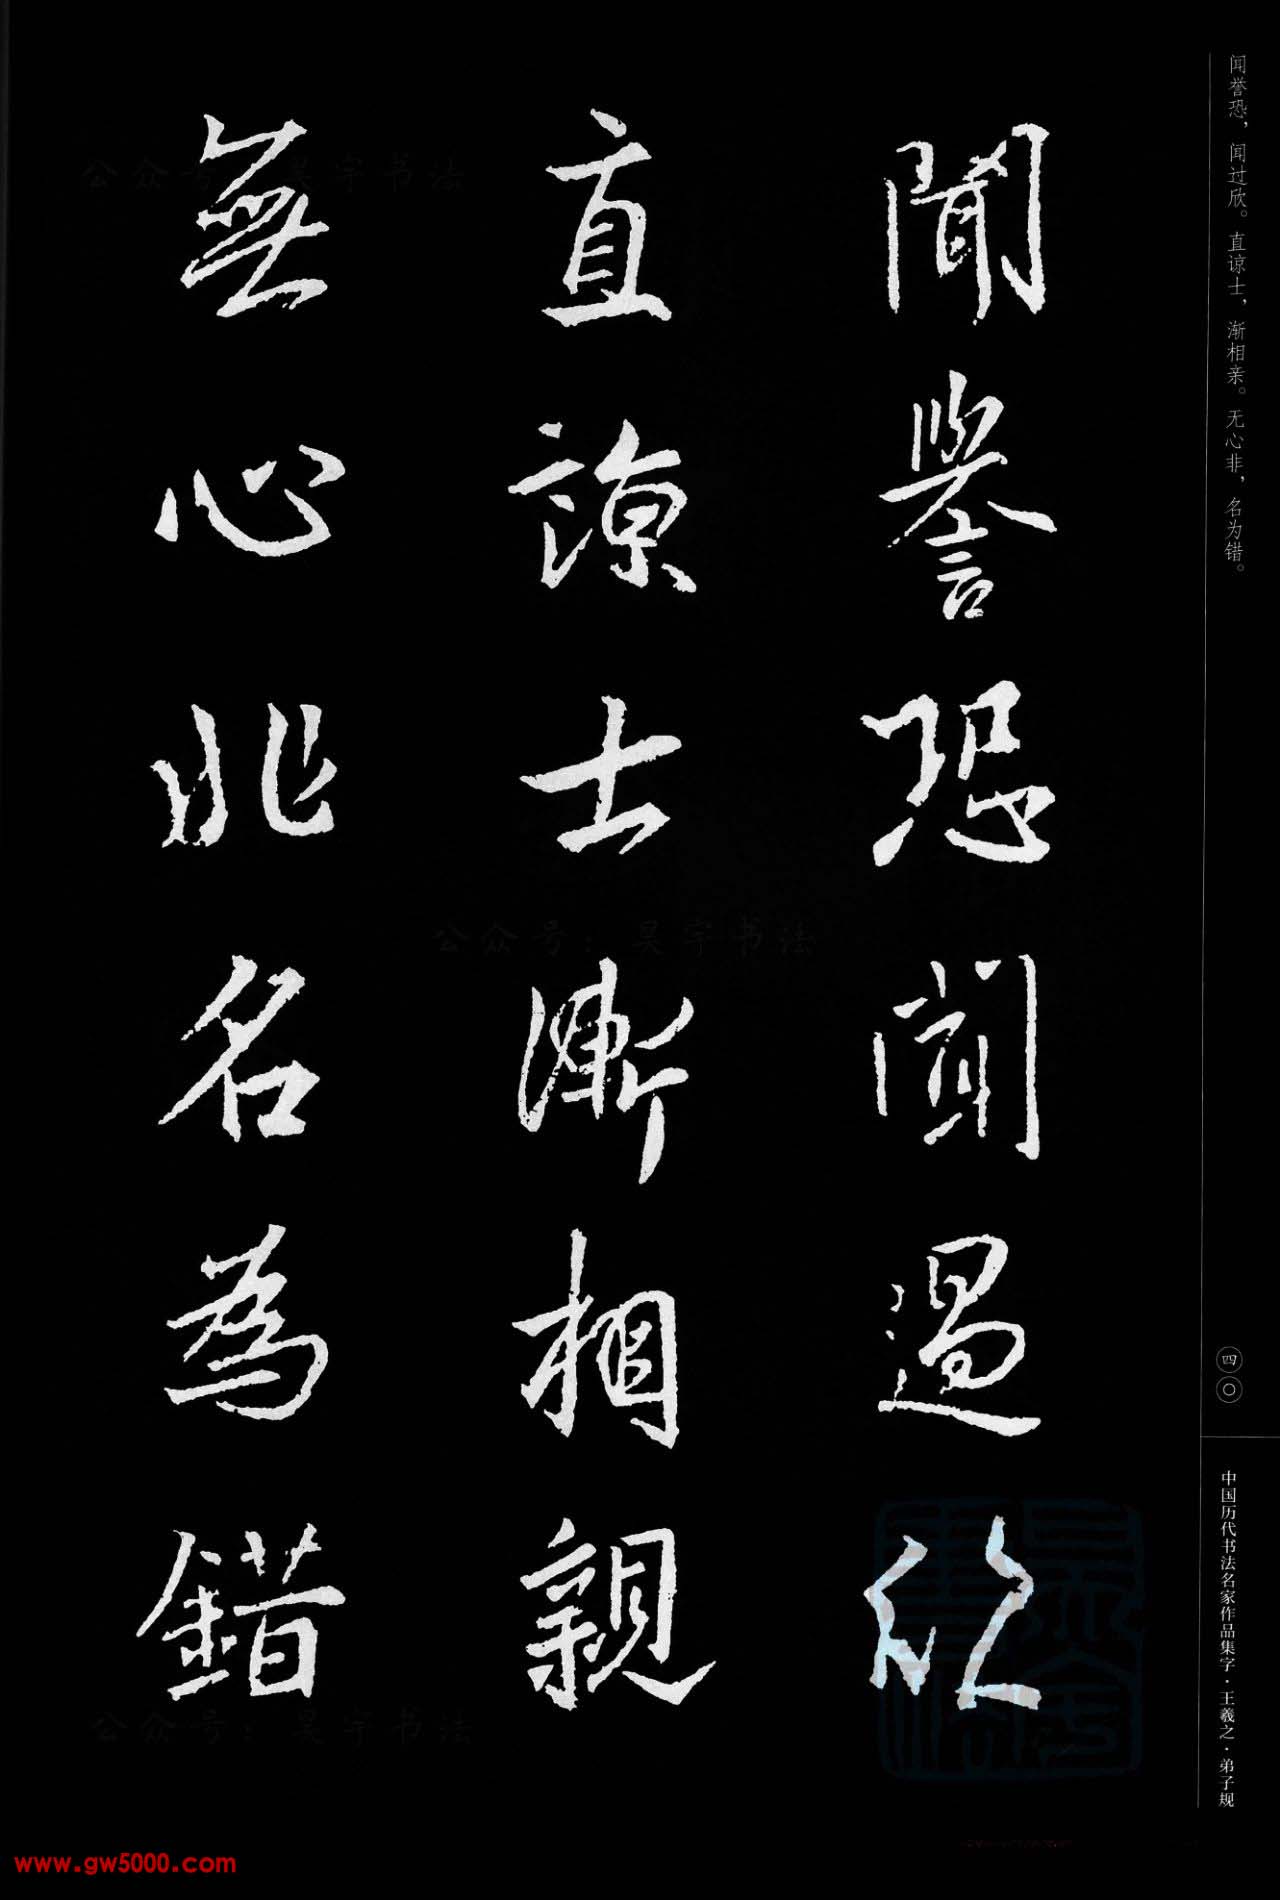 闻誉恐，闻过欣。直谅士，渐相亲。无心非，名为错。
聞譽恐聞過欣
直諒士漸相親
無心非名為錯
四〇
中国历代书法名家作品集字·王羲之·弟子规
公众号：昊宇书法
公众号：昊宇书法
公众号：昊宇书法
www.gw5000.com